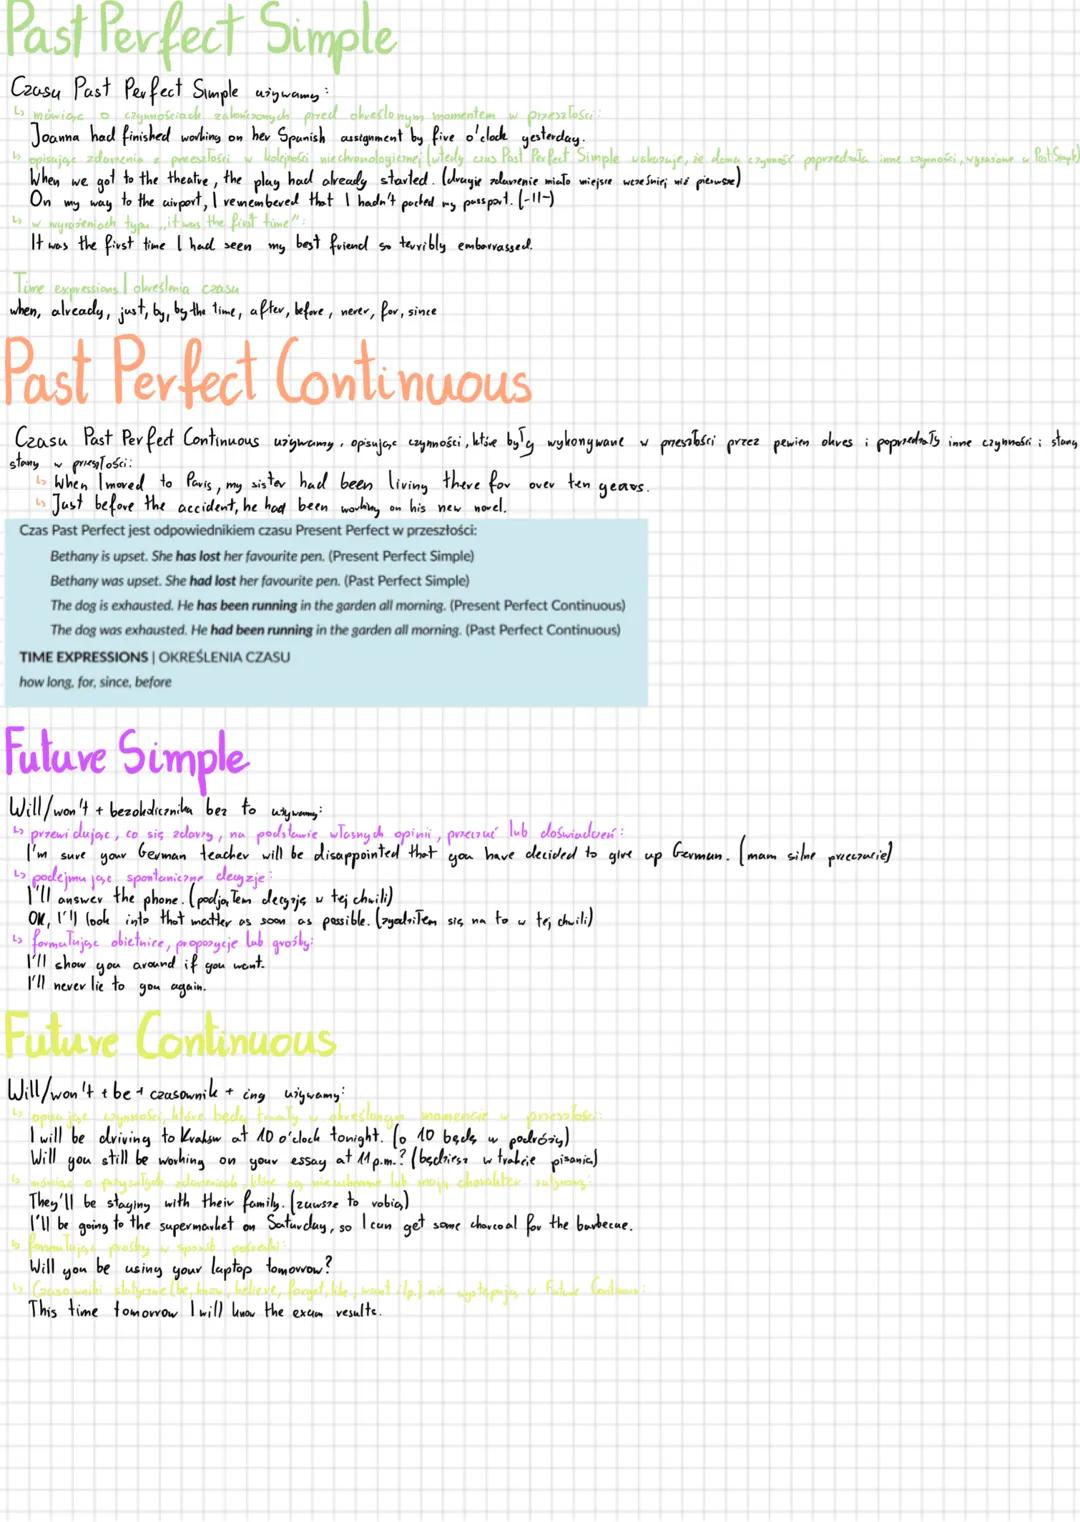 Past Perfect Simple
Czasu Past Perfect Simple używamy:
↳ mówiąc o czynnościach zakończonych przed określonym momentem w przeszłości:
Joanna had finished working on her Spanish assignment by five o'clock yesterday.
↳ opisując zdarzenia z przeszłości w kolejności niechronologicznej (wtedy czas Past Perfect Simple wskazuje, że dana czynność poprzedzała inne czynności, wyrażone w Past Simple)
When we got to the theatre, the play had already started. (drugie zdarzenie miało miejsce wcześniej niż pierwsze)
On my way to the airport, I remembered that I hadn't packed my passport. (-||-)
↳ w wyrażeniach typu „it was the first time":
It was the first time I had seen my best friend so terribly embarrassed.
Time expressions | określenia czasu
when, already, just, by, by the time, after, before, never, for, since
Past Perfect Continuous
Czasu Past Perfect Continuous używamy, opisując czynności, które były wykonywane w przeszłości przez pewien okres i poprzedzały inne czynności i stany
stany w przeszłości:
↳ When I moved to Paris, my sister had been living there for over ten years.
↳ Just before the accident, he had been working on his new novel.
Czas Past Perfect jest odpowiednikiem czasu Present Perfect w przeszłości:
Bethany is upset. She has lost her favourite pen. (Present Perfect Simple)
Bethany was upset. She had lost her favourite pen. (Past Perfect Simple)
The dog is exhausted. He has been running in the garden all morning. (Present Perfect Continuous)
The dog was exhausted. He had been running in the garden all morning. (Past Perfect Continuous)
TIME EXPRESSIONS | OKREŚLENIA CZASU
how long, for, since, before
Future Simple
Will/won't + bezokolicznika bez to używamy:
↳ przewidując, co się zdarzy, na podstawie własnych opinii, przeczuć lub doświadczeń:
I'm sure your German teacher will be disappointed that you have decided to give up German. (mam silne przeczucie)
↳ podejmując spontaniczne decyzje:
I'll answer the phone. (podjąłem decyzję w tej chwili)
OK, I'll look into that matter as soon as possible. (zgodziłem się na to w tej chwili)
↳ formułując obietnice, propozycje lub groźby:
I'll show you around if you want.
I'll never lie to you again.
Future Continuous
Will/won't + be + czasownik + ing używamy:
↳ opisując czynności, które będą trwały w określonym momencie w przeszłości:
I will be driving to Kraków at 10 o'clock tonight. (o 10 będę w podróży)
Will you still be working on your essay at 11 p.m.? (będziesz w trakcie pisania)
↳ mówiąc o przyszłych zdarzeniach, które są nieuchronne lub mają charakter rutynowy:
They'll be staying with their family. (zawsze to robią)
I'll be going to the supermarket on Saturday, so I can get some charcoal for the barbecue.
↳ formułując prośby w sposób pośredni:
Will you be using your laptop tomorrow?
↳ Czasowniki statyczne (be, know, believe, forget, like, want itp.) nie występują w Future Continuous:
This time tomorrow I will know the exam results.